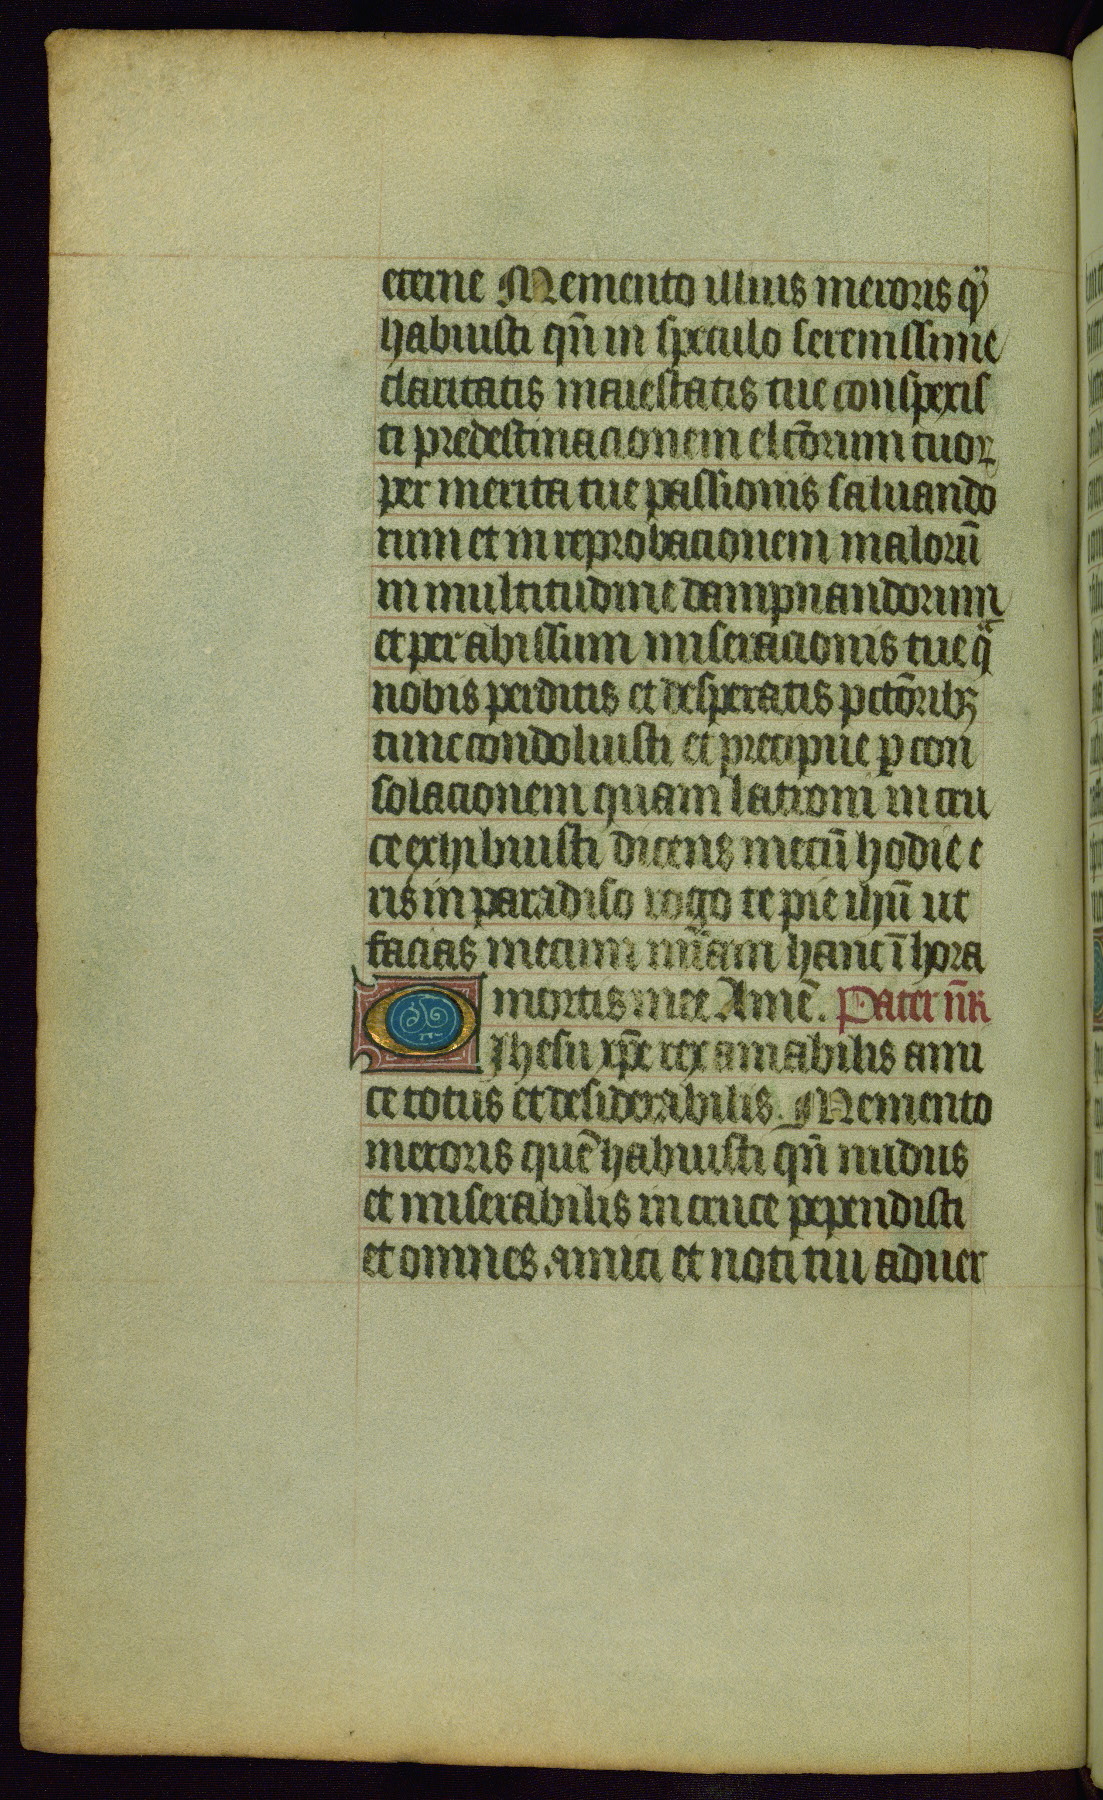 eterne Memento illius meroris qͥ
habuisti qn̄ in speculo serenissime
claritatis maiestatis tue conspexis
ti predestinacionem elc̄orum tuoꝝ
per merita tue passionis saluando
rum et in reprobacionem malorū
in multitudine dampnandorum
et per abissum miseracionis tue qᷓ
nobis perditis et desperatis pctōribꝫ
tunc condoluisti et precipue ꝑ con
solacionem quam latroni in cru
ce exhibuisti dicens mecū hodie e
ris in paradiso rogo te pie ihū ut
facias mecum mīam hanc ī hora
mortis mee Amē. Pater nr̄
O Ihesu xp̄e rex amabilis ami
ce totus et desiderabilis. Memento
meroris quē habuisti qn̄ nudus
et miserabilis in cruce pependisti
et omnes amici et noti tui aduer